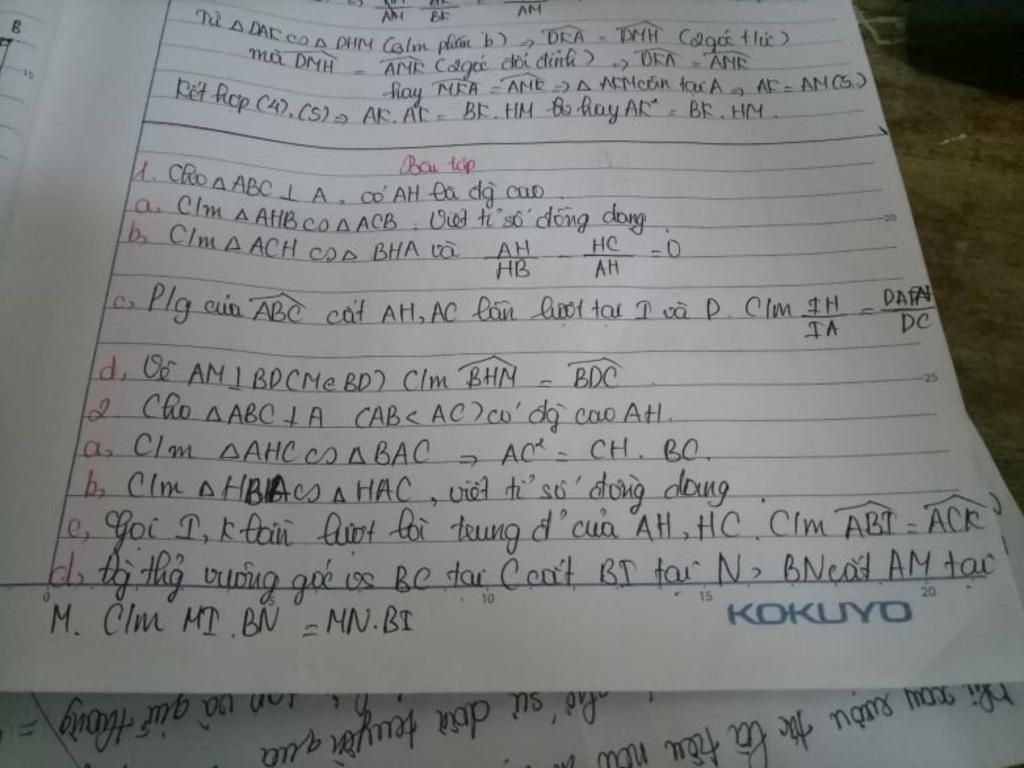 B
15
AM BK AM
Từ △ DAK ∽ △ DHM (c/m phần b) → DKA = DMH (2góc t/ứ)
mà DMH = AMK (2góc đối đỉnh) → DKA = AMK
hay MKA = AMK → △ AKM cân tại A → AK = AM (5)
Kết hợp (4), (5) → AK. AK = BK. HM hay AK² = BK. HM.
Bài tập
1. Cho △ ABC ⊥ A, có AH là đg cao
a, C/m △ AHB ∽ △ ACB. Viết tỉ số đồng dạng 20
b, C/m △ ACH ∽ △ BHA và AH/HB - HC/AH = 0
c, P/g của ABC cắt AH, AC lần lượt tại I và D. C/m IH/IA = DA/DC
d, Vẽ AM ⊥ BD (M∈BD) C/m BHM = BDC 25
2 Cho △ ABC ⊥ A (AB < AC) có đg cao AH.
a, C/m △ AHC ∽ △ BAC → AC² = CH. BC.
b, C/m △ HBA ∽ △ HAC, viết tỉ số đồng dạng.
c, Gọi I, K lần lượt là trung đ' của AH, HC. C/m ABI = ACK
d, Đg thg vuông góc vs BC tại C cắt BI tại N, BN cắt AM tại
0 10 15 20
M. C/m MI. BN = MN. BI
KOKUYO